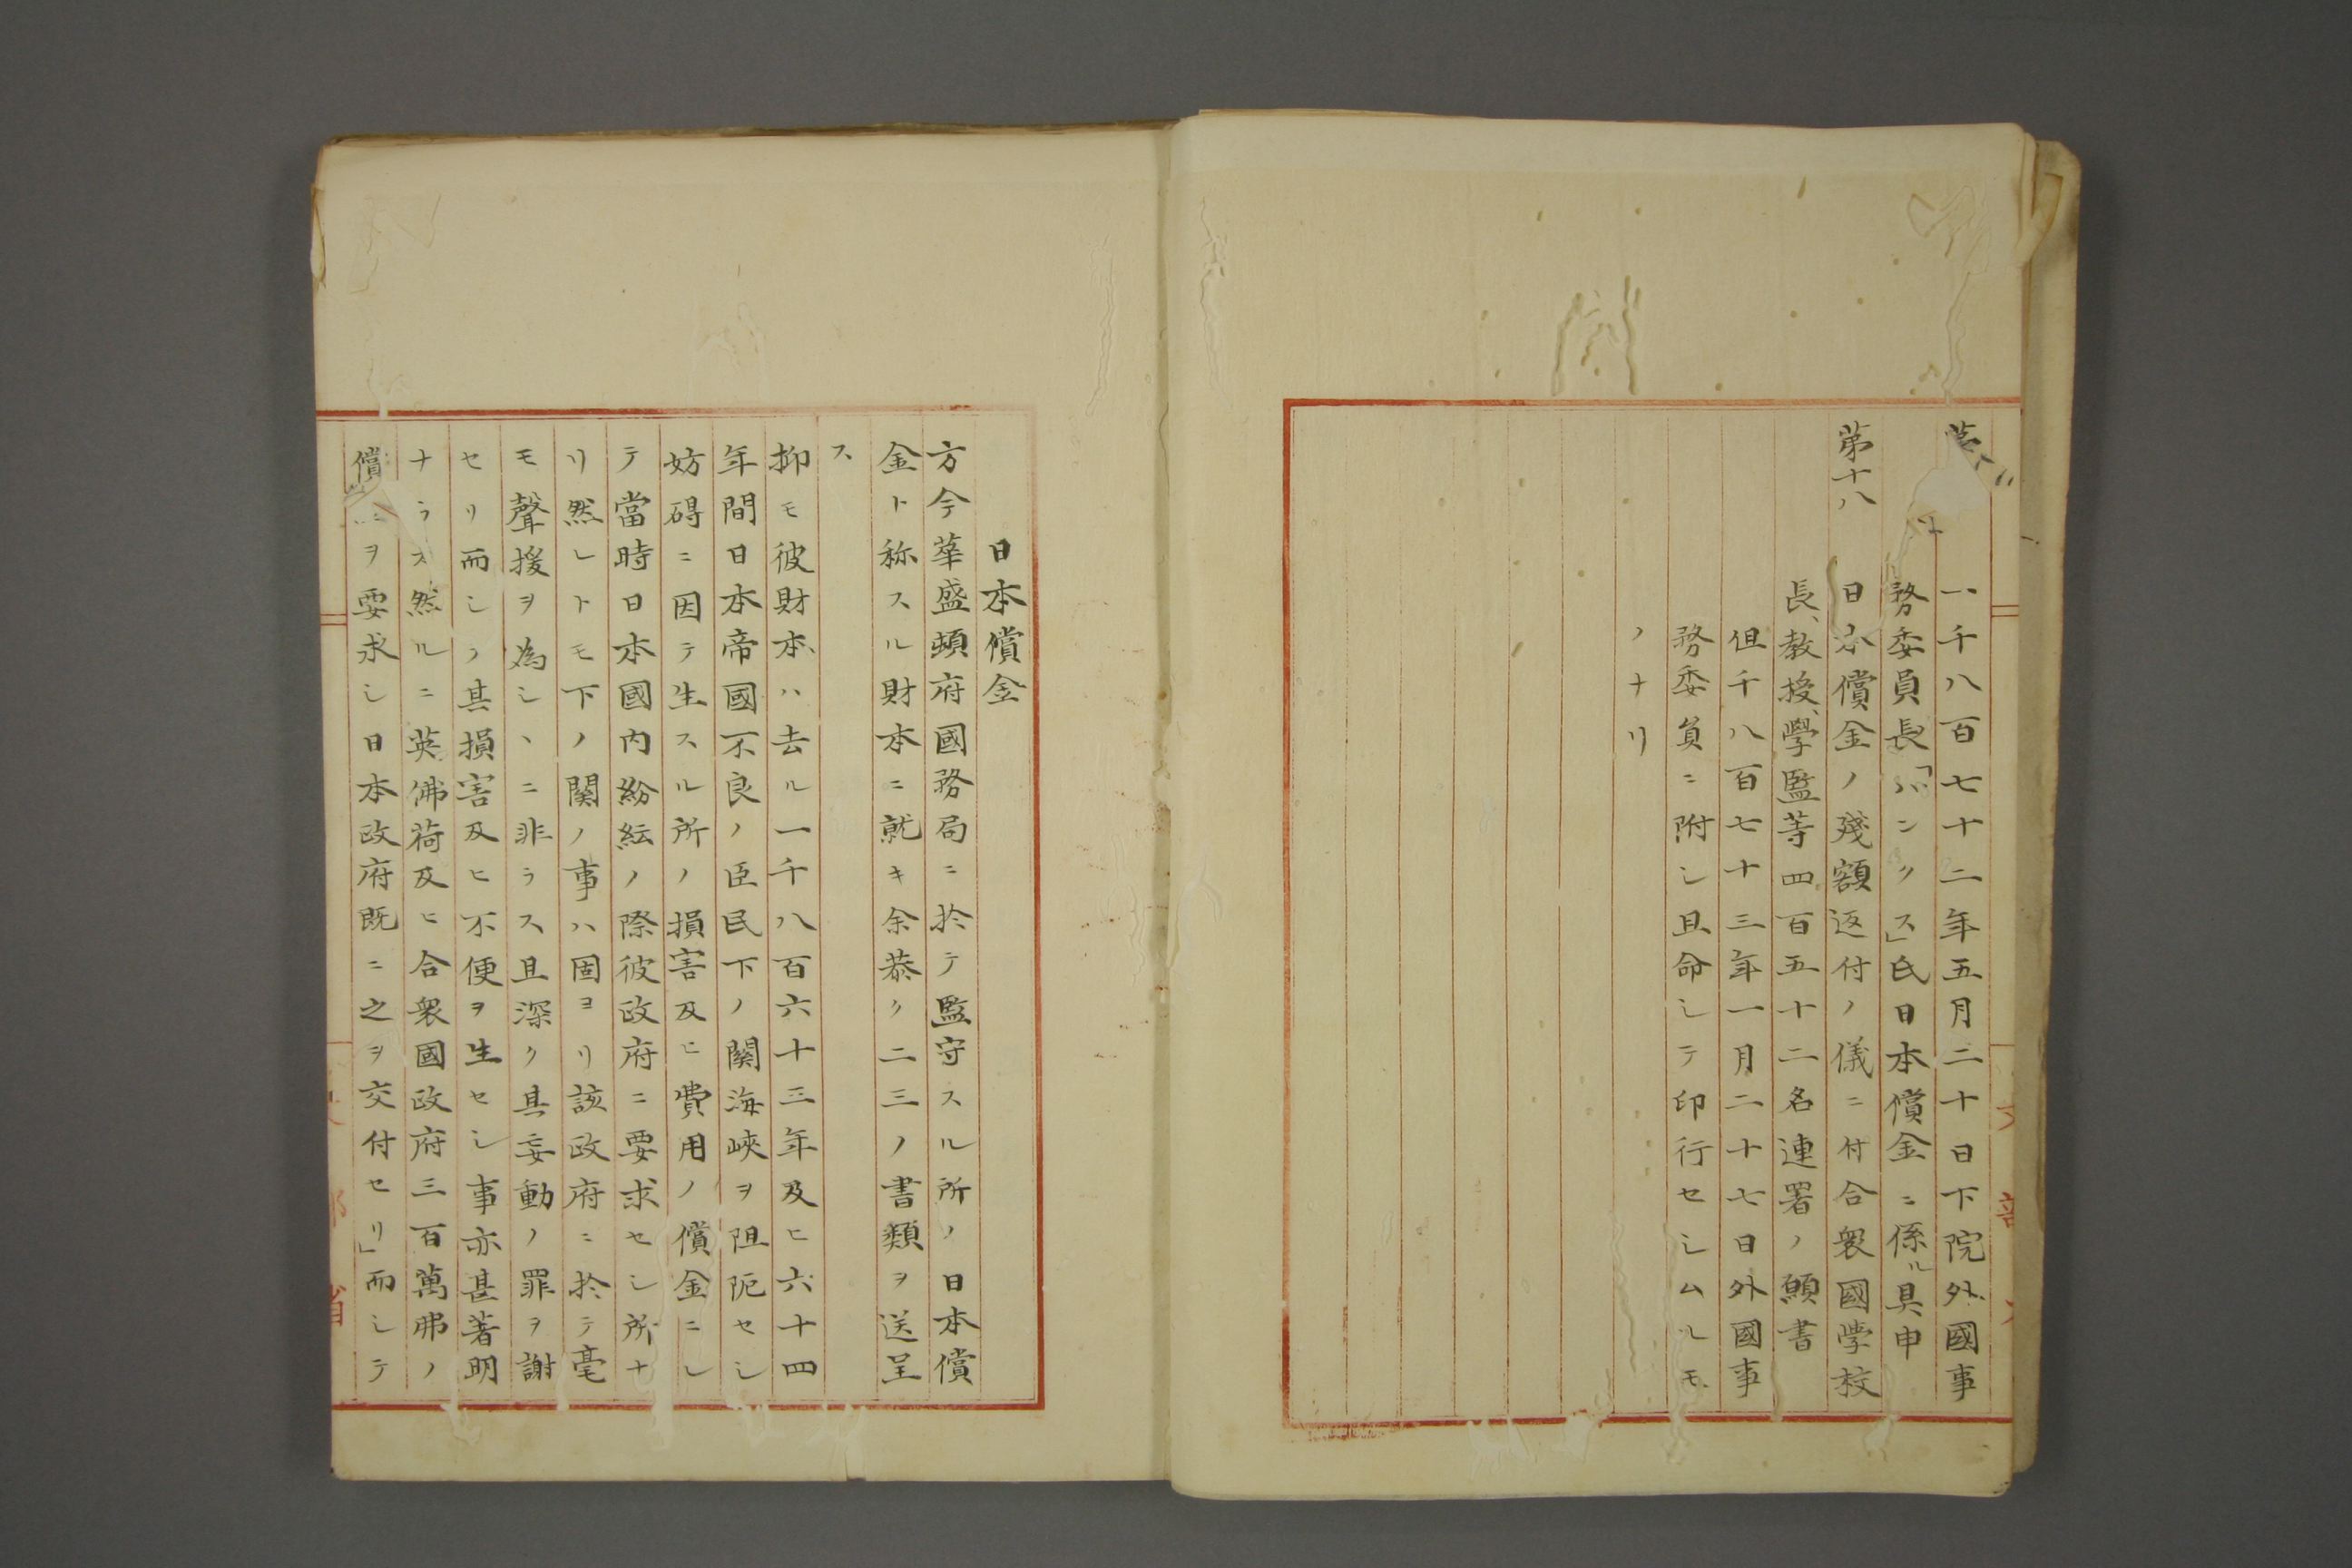 一千八百七十二年五月二十日下院外國事
務委員長「バンクス」氏日本償金ニ係ル具申
第十八
日本償金ノ殘額返付ノ儀ニ付合衆國學校
長、教授、學監等四百五十二名連署ノ願書
但千八百七十三年一月二十七日外國事
務委員ニ附シ且命シテ印行セシムルモ
ノナリ
日本償金
方今華盛頓府國務局ニ於テ監守スル所ノ日本償
金ト称スル財本ニ就キ余恭ク二三ノ書類ヲ送呈
ス
抑モ彼財本ハ去ル一千八百六十三年及ヒ六十四
年間日本帝國不良ノ臣民下ノ関海峽ヲ阻阨セシ
妨碍ニ因テ生スル所ノ損害及ヒ費用ノ償金ニシ
テ當時日本國内紛紜ノ際彼政府ニ要求セシ所ナ
リ然レトモ下ノ関ノ事ハ固ヨリ該政府ニ於テ毫
モ聲援ヲ為シヽニ非ラス且深ク其妄動ノ罪ヲ謝
セリ而シテ其損害及ヒ不便ヲ生セシ事亦甚著明
ナラス然ルニ英佛荷及ヒ合衆國政府三百萬弗ノ
償ヲ要求シ日本政府既ニ之ヲ交付セリ」而シテ
文部省